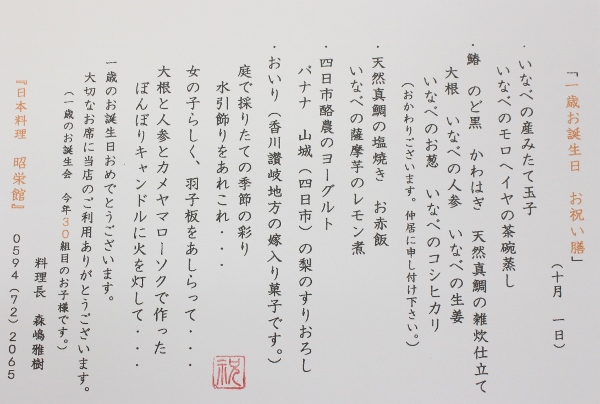 「一歳お誕生日　お祝い膳」
（十月　一日）
・いなべの産みたて玉子
いなべのモロヘイヤの茶碗蒸し
・鰆　のど黒　かわはぎ　天然真鯛の雑炊仕立て
大根　いなべの人参　いなべの生姜
いなべのお葱　いなべのコシヒカリ
（おかわりございます。仲居に申し付け下さい。）
・天然真鯛の塩焼き　お赤飯
いなべの薩摩芋のレモン煮
・四日市酪農のヨーグルト
バナナ　山城（四日市）の梨のすりおろし
・おいり（香川讃岐地方の嫁入り菓子です。）
庭で採りたての季節の彩り
水引飾りをあれこれ・・
女の子らしく、羽子板をあしらって・・・・
大根と人参とカメヤマローソクで作った
ぼんぼりキャンドルに火を灯して・・・・
一歳のお誕生日おめでとうございます。
大切なお席に当店のご利用ありがとうございます。
（一歳のお誕生会　今年３０組目のお子様です。）
料理長　森嶋雅樹
『日本料理　昭栄館』　０５９４（７２）２０６５
祝